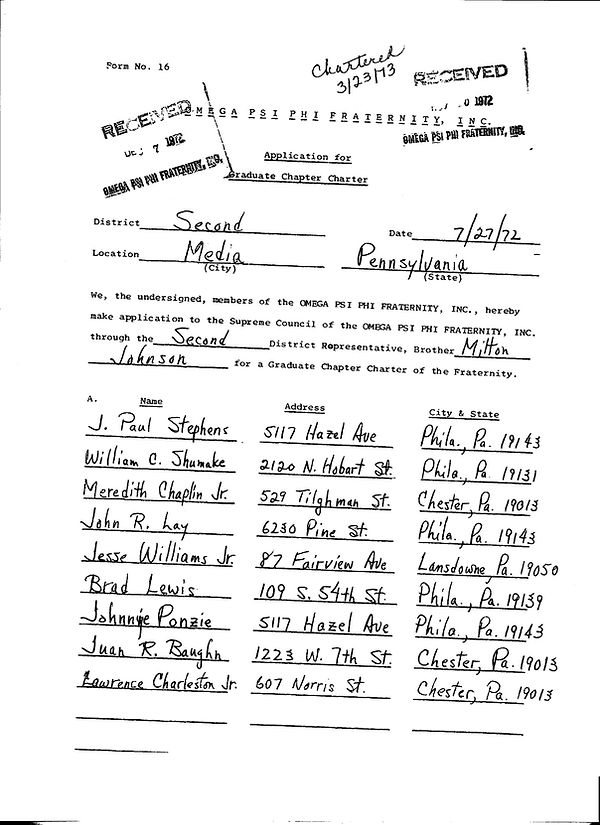 Form No. 16
Chartered
3/23/73
RECEIVED
0 1972
OMEGA PSI PHI FRATERNITY, INC.
RECEIVED
7 1972
OMEGA PSI PHI FRATERNITY, INC.
OMEGA PSI PHI FRATERNITY, INC.
Application for
Graduate Chapter Charter
District Second Date 7/27/72
Location Media Pennsylvania
(City) (State)
We, the undersigned, members of the OMEGA PSI PHI FRATERNITY, INC., hereby
make application to the Supreme Council of the OMEGA PSI PHI FRATERNITY, INC.
through the Second District Representative, Brother Milton
Johnson for a Graduate Chapter Charter of the Fraternity.
A. Name Address City & State
J. Paul Stephens 5117 Hazel Ave Phila., Pa. 19143
William C. Shumake 2120 N. Hobart St. Phila., Pa. 19131
Meredith Chaplin Jr. 529 Tilghman St. Chester, Pa. 19013
John R. Lay 6230 Pine St. Phila., Pa. 19143
Jesse Williams Jr. 87 Fairview Ave Lansdowne, Pa. 19050
Brad Lewis 109 S. 54th St. Phila., Pa. 19139
Johnnye Ponzie 5117 Hazel Ave Phila., Pa. 19143
Juan R. Baughn 1223 W. 7th St. Chester, Pa. 19013
Lawrence Charleston Jr. 607 Norris St. Chester, Pa. 19013